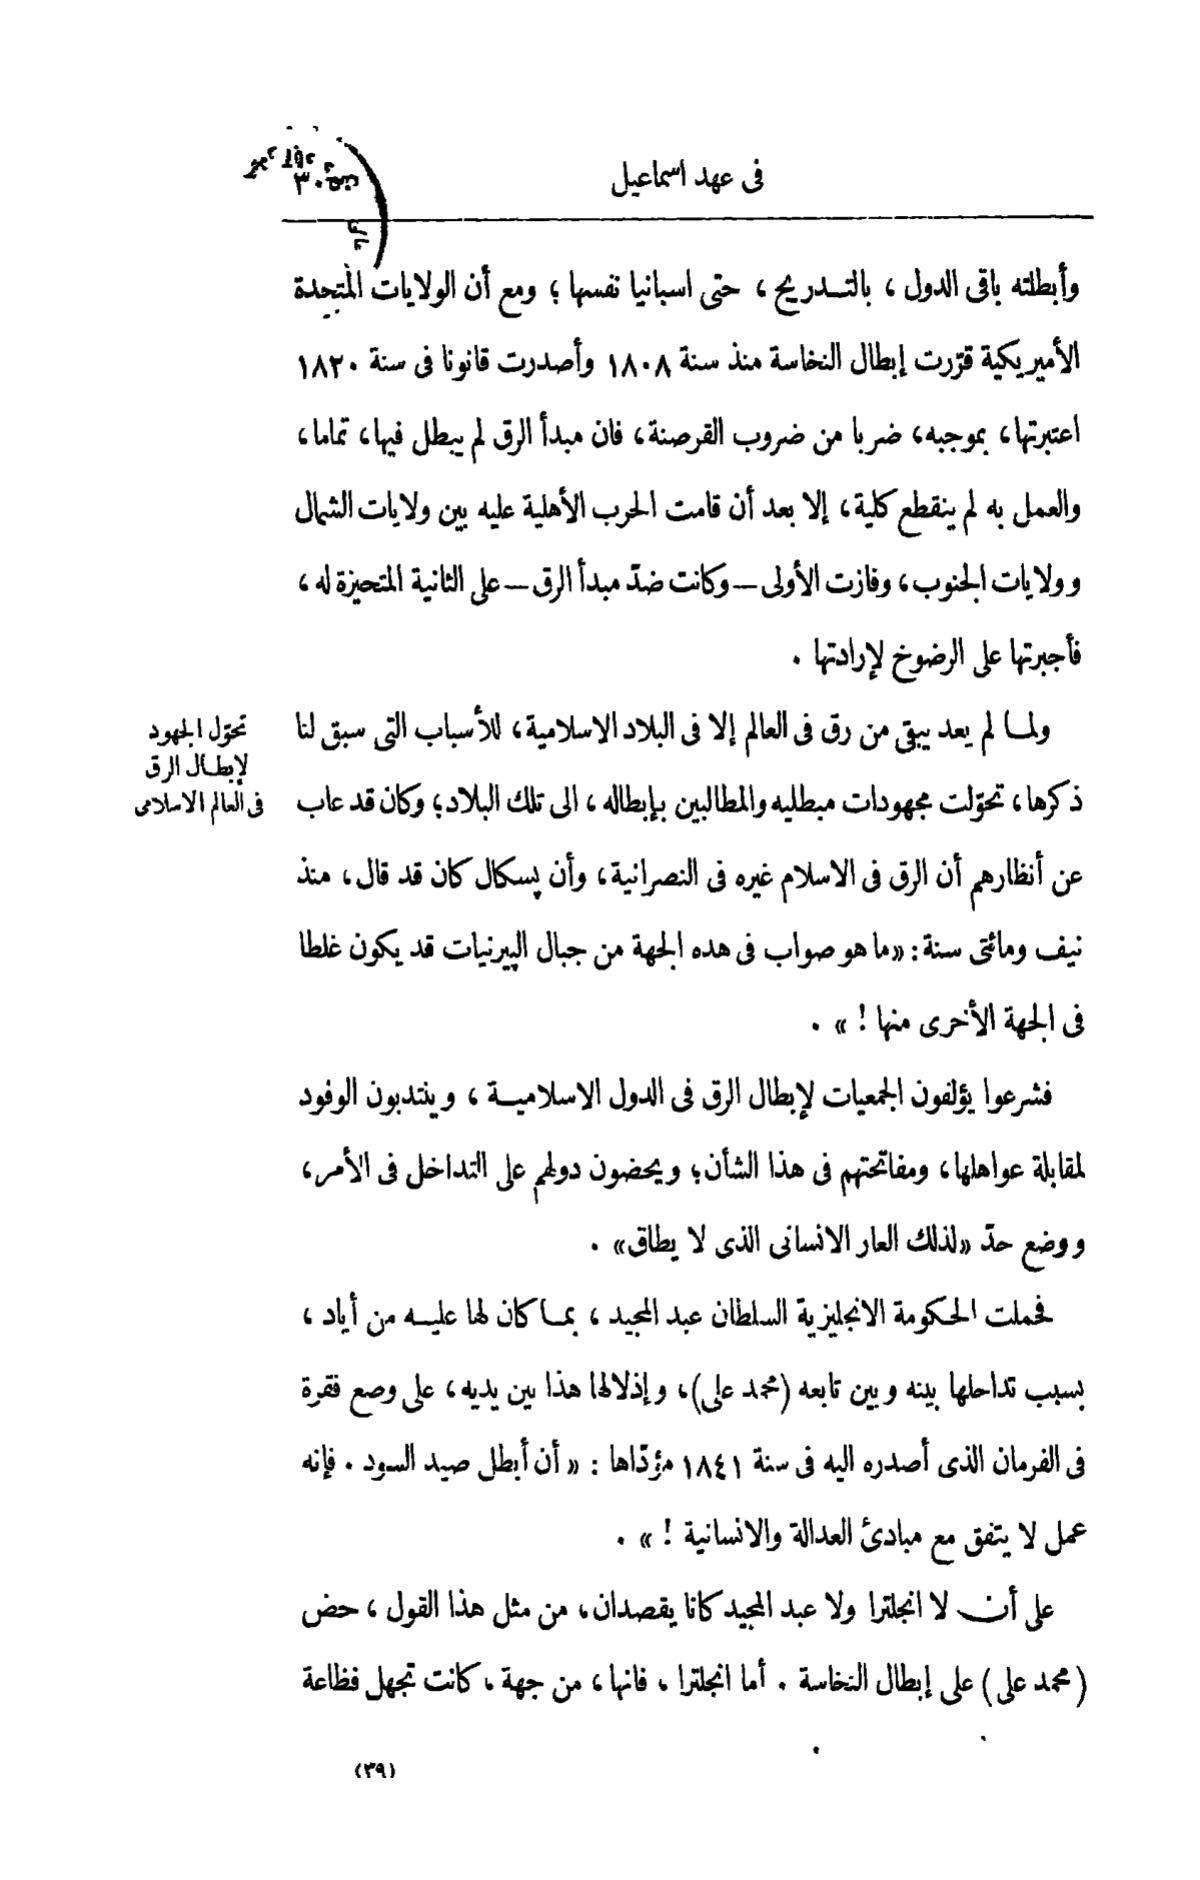 فى عهد اسماعيل
وأبطلته باقى الدول ، بالتدريج ، حتى اسبانيا نفسها ؛ ومع أن الولايات المتحدة
الأميريكية قرّرت إبطال النخاسة منذ سنة ١٨٠٨ وأصدرت قانونا فى سنة ١٨٢٠
اعتبرتها، بموجبه، ضربا من ضروب القرصنة، فان مبدأ الرق لم يبطل فيها، تماما،
والعمل به لم ينقطع كلية، إلا بعد أن قامت الحرب الأهلية عليه بين ولايات الشمال
وولايات الجنوب، وفازت الأولى – وكانت ضدّ مبدأ الرق – على الثانية المتحيزة له ،
فأجبرتها على الرضوخ لإرادتها .
ولما لم يعد يبقى من رق فى العالم إلا فى البلاد الاسلامية، للأسباب التى سبق لنا
ذكرها، تحوّلت مجهودات مبطليه والمطالبين بإبطاله ، الى تلك البلاد؛ وكان قد عاب
عن أنظارهم أن الرق فى الاسلام غيره فى النصرانية، وأن پسكال كان قد قال، منذ
نيف ومائتى سنة: «ما هو صواب فى هده الجهة من جبال الپيرنيات قد يكون غلطا
فى الجهة الأخرى منها ! » .
تحوّل الجهود
لإبطال الرق
فى العالم الاسلامى
فشرعوا يؤلفون الجمعيات لإبطال الرق فى الدول الاسلامية ، وينتدبون الوفود
لمقابلة عواهلها، ومفاتحتهم فى هذا الشأن؛ ويحضون دولهم على التداخل فى الأمر،
ووضع حدّ «لذلك العار الانسانى الذى لا يطاق» .
فحملت الحكومة الانجليزية السلطان عبد المجيد ، بما كان لها عليه من أياد ،
بسبب تداحلها بينه وبين تابعه (محمد على)، وإذلالها هذا بين يديه، على وصع فقرة
فى الفرمان الذى أصدره اليه فى سنة ١٨٤١ مؤدّاها : «أن أبطل صيد السود . فإنه
عمل لا يتفق مع مبادئ العدالة والانسانية ! » .
على أن لا انجلترا ولا عبد المجيد كانا يقصدان، من مثل هذا القول ، حض
(محمد على) على إبطال النخاسة . أما انجلترا ، فانها ، من جهة ، كانت تجهل فظاعة
(٣٩)